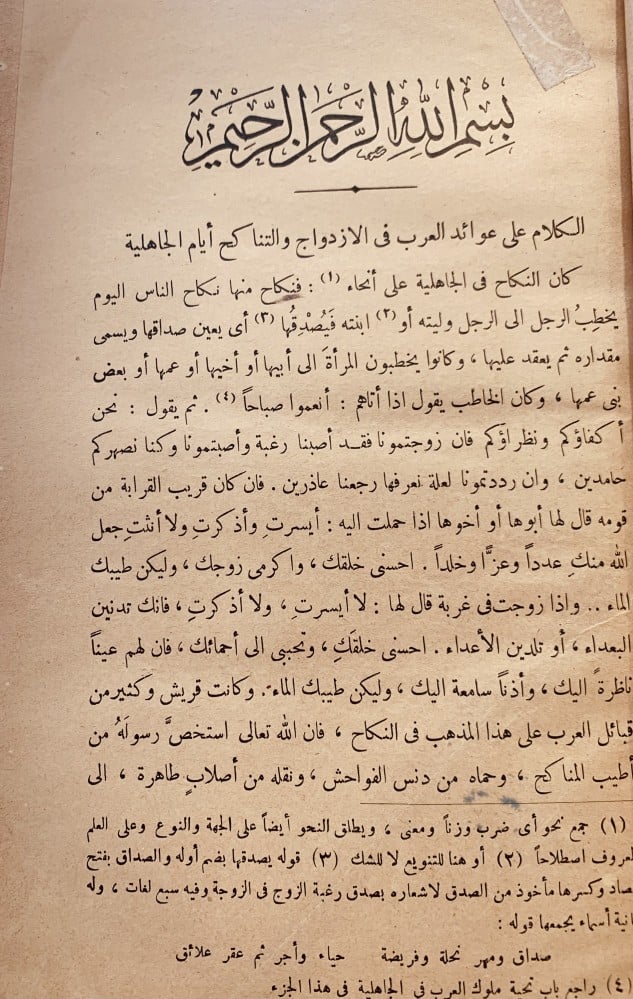 بِسْمِ اللهِ الرَّحْمَنِ الرَّحِيمِ
الكلام على عوائد العرب فى الازدواج والتناكح أيام الجاهلية
كان النكاح فى الجاهلية على أنحاء (١) : فنكاح منها نكاح الناس اليوم
يخطِبُ الرجل الى الرجل وليته أو (٢) ابنته فَيُصْدِقُها (٣) أى يعين صداقها ويسمى
مقداره ثم يعقد عليها ، وكانوا يخطبون المرأةَ الى أبيها أو أخيها أو عمها أو بعض
بنى عمها ، وكان الخاطب يقول اذا أتاهم : أنعموا صباحاً (٤) . ثم يقول : نحن
أكفاؤكم ونظراؤكم فان زوجتمونا فقد أصبنا رغبة وأصبتمونا وكنا نصهركم
حامدين ، وان رددتمونا لعلة نعرفها رجعنا عاذرين . فان كان قريب القرابة من
قومه قال لها أبوها أو أخوها اذا حملت اليه : أيسرتِ وأذكرتِ ولا أنثتِ جعل
الله منكِ عدداً وعزًّا وخلداً . احسنى خلقك ، واكرمى زوجك ، وليكن طيبك
الماء .. واذا زوجت فى غربة قال لها : لا أيسرتِ ، ولا أذكرتِ ، فانك تدنين
البعداء ، أو تلدين الأعداء . احسنى خلقَكِ ، وتحببى الى أحمائك ، فان لهم عيناً
ناظرةً اليك ، وأذناً سامعة اليك ، وليكن طيبك الماء . وكانت قريش وكثير من
قبائل العرب على هذا المذهب فى النكاح ، فان الله تعالى استخصَّ رسولَهُ من
أطيب المناكح ، وحماه من دنس الفواحش ، ونقله من أصلاب طاهرة ، الى
(١) جمع نحو أى ضرب وزناً ومعنى ، ويطلق النحو أيضاً على الجهة والنوع وعلى العلم
لمعروف اصطلاحاً (٢) أو هنا للتنويع لا للشك (٣) قوله يصدقها بضم أوله والصداق بفتح
صاد وكسرها مأخوذ من الصدق لاشعاره بصدق رغبة الزوج فى الزوجة وفيه سبع لغات ، وله
انية أسماء يجمعها قوله :
صداق ومهر نحلة وفريضة حباء وأجر ثم عقر علائق
(٤) راجع باب تحية ملوك العرب فى الجاهلية فى هذا الجزء